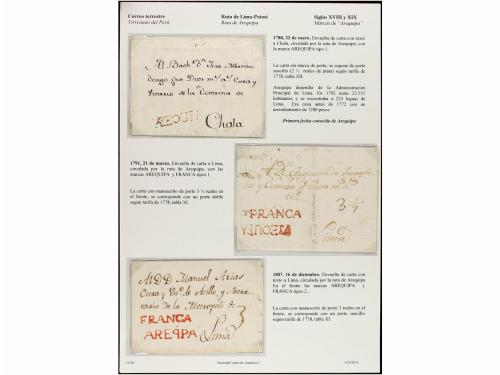 Correo terrestre
Virreinato del Perú
Ruta de Lima-Potosí
Ruta de Arequipa
Siglos XVIII y XIX
Marcas de "Arequipa"
1788, 22 de enero. Envuelta de carta con texto
a Chala, circulada por la ruta de Arequipa, con
la marca AREQUIPA tipo 1.
La carta sin marca de porte, se supone de porte
sencillo (2 ½ reales de plata) según tarifa de
1778, tabla XII.
Arequipa dependía de la Administración
Principal de Lima. En 1792 tenía 23.551
habitantes y se encontraba a 224 leguas de
Lima. Era casa antes de 1772 con un
arrendamiento de 1200 pesos.
Primera fecha conocida de Arequipa
Al Bach.r Dn Jose
que Dios m.s a.s Cura y
Vicario de la Doctrina de
Chala
1791, 21 de marzo. Envuelta de carta a Lima,
circulada por la ruta de Arequipa, con las
marcas AREQUIPA y FRANCA tipos 1.
La carta con manuscrito de porte 3 ½ reales en
el frente, se corresponde con un porte doble
según tarifa de 1778, tabla XI.
3 ½
FRANCA
Lima
1807, 16 de diciembre. Envuelta de carta con
texto a Lima, circulada por la ruta de Arequipa
En el frente las marcas AREQUIPA y
FRANCA tipos 2..
La carta con manuscrito de porte 3 reales en el
frente, se corresponde con un porte sencillo
según tarifa de 1778, tabla XI.
Al D.D. Manuel Arias
Cura y Vic.o de
de la Metropoli &
3
FRANCA
AREQIPA
Lima